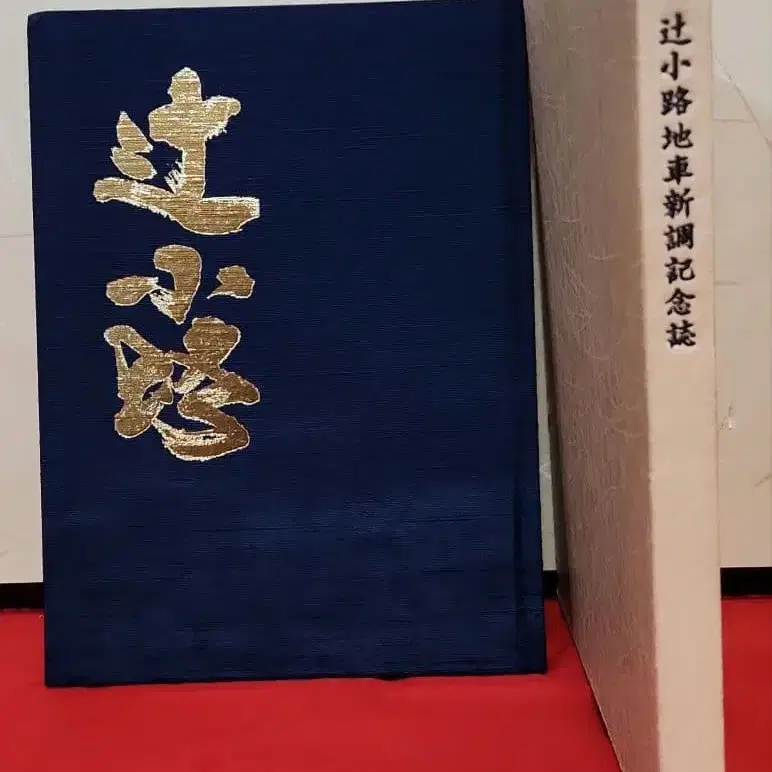 辻小路
辻小路地車新調記念誌